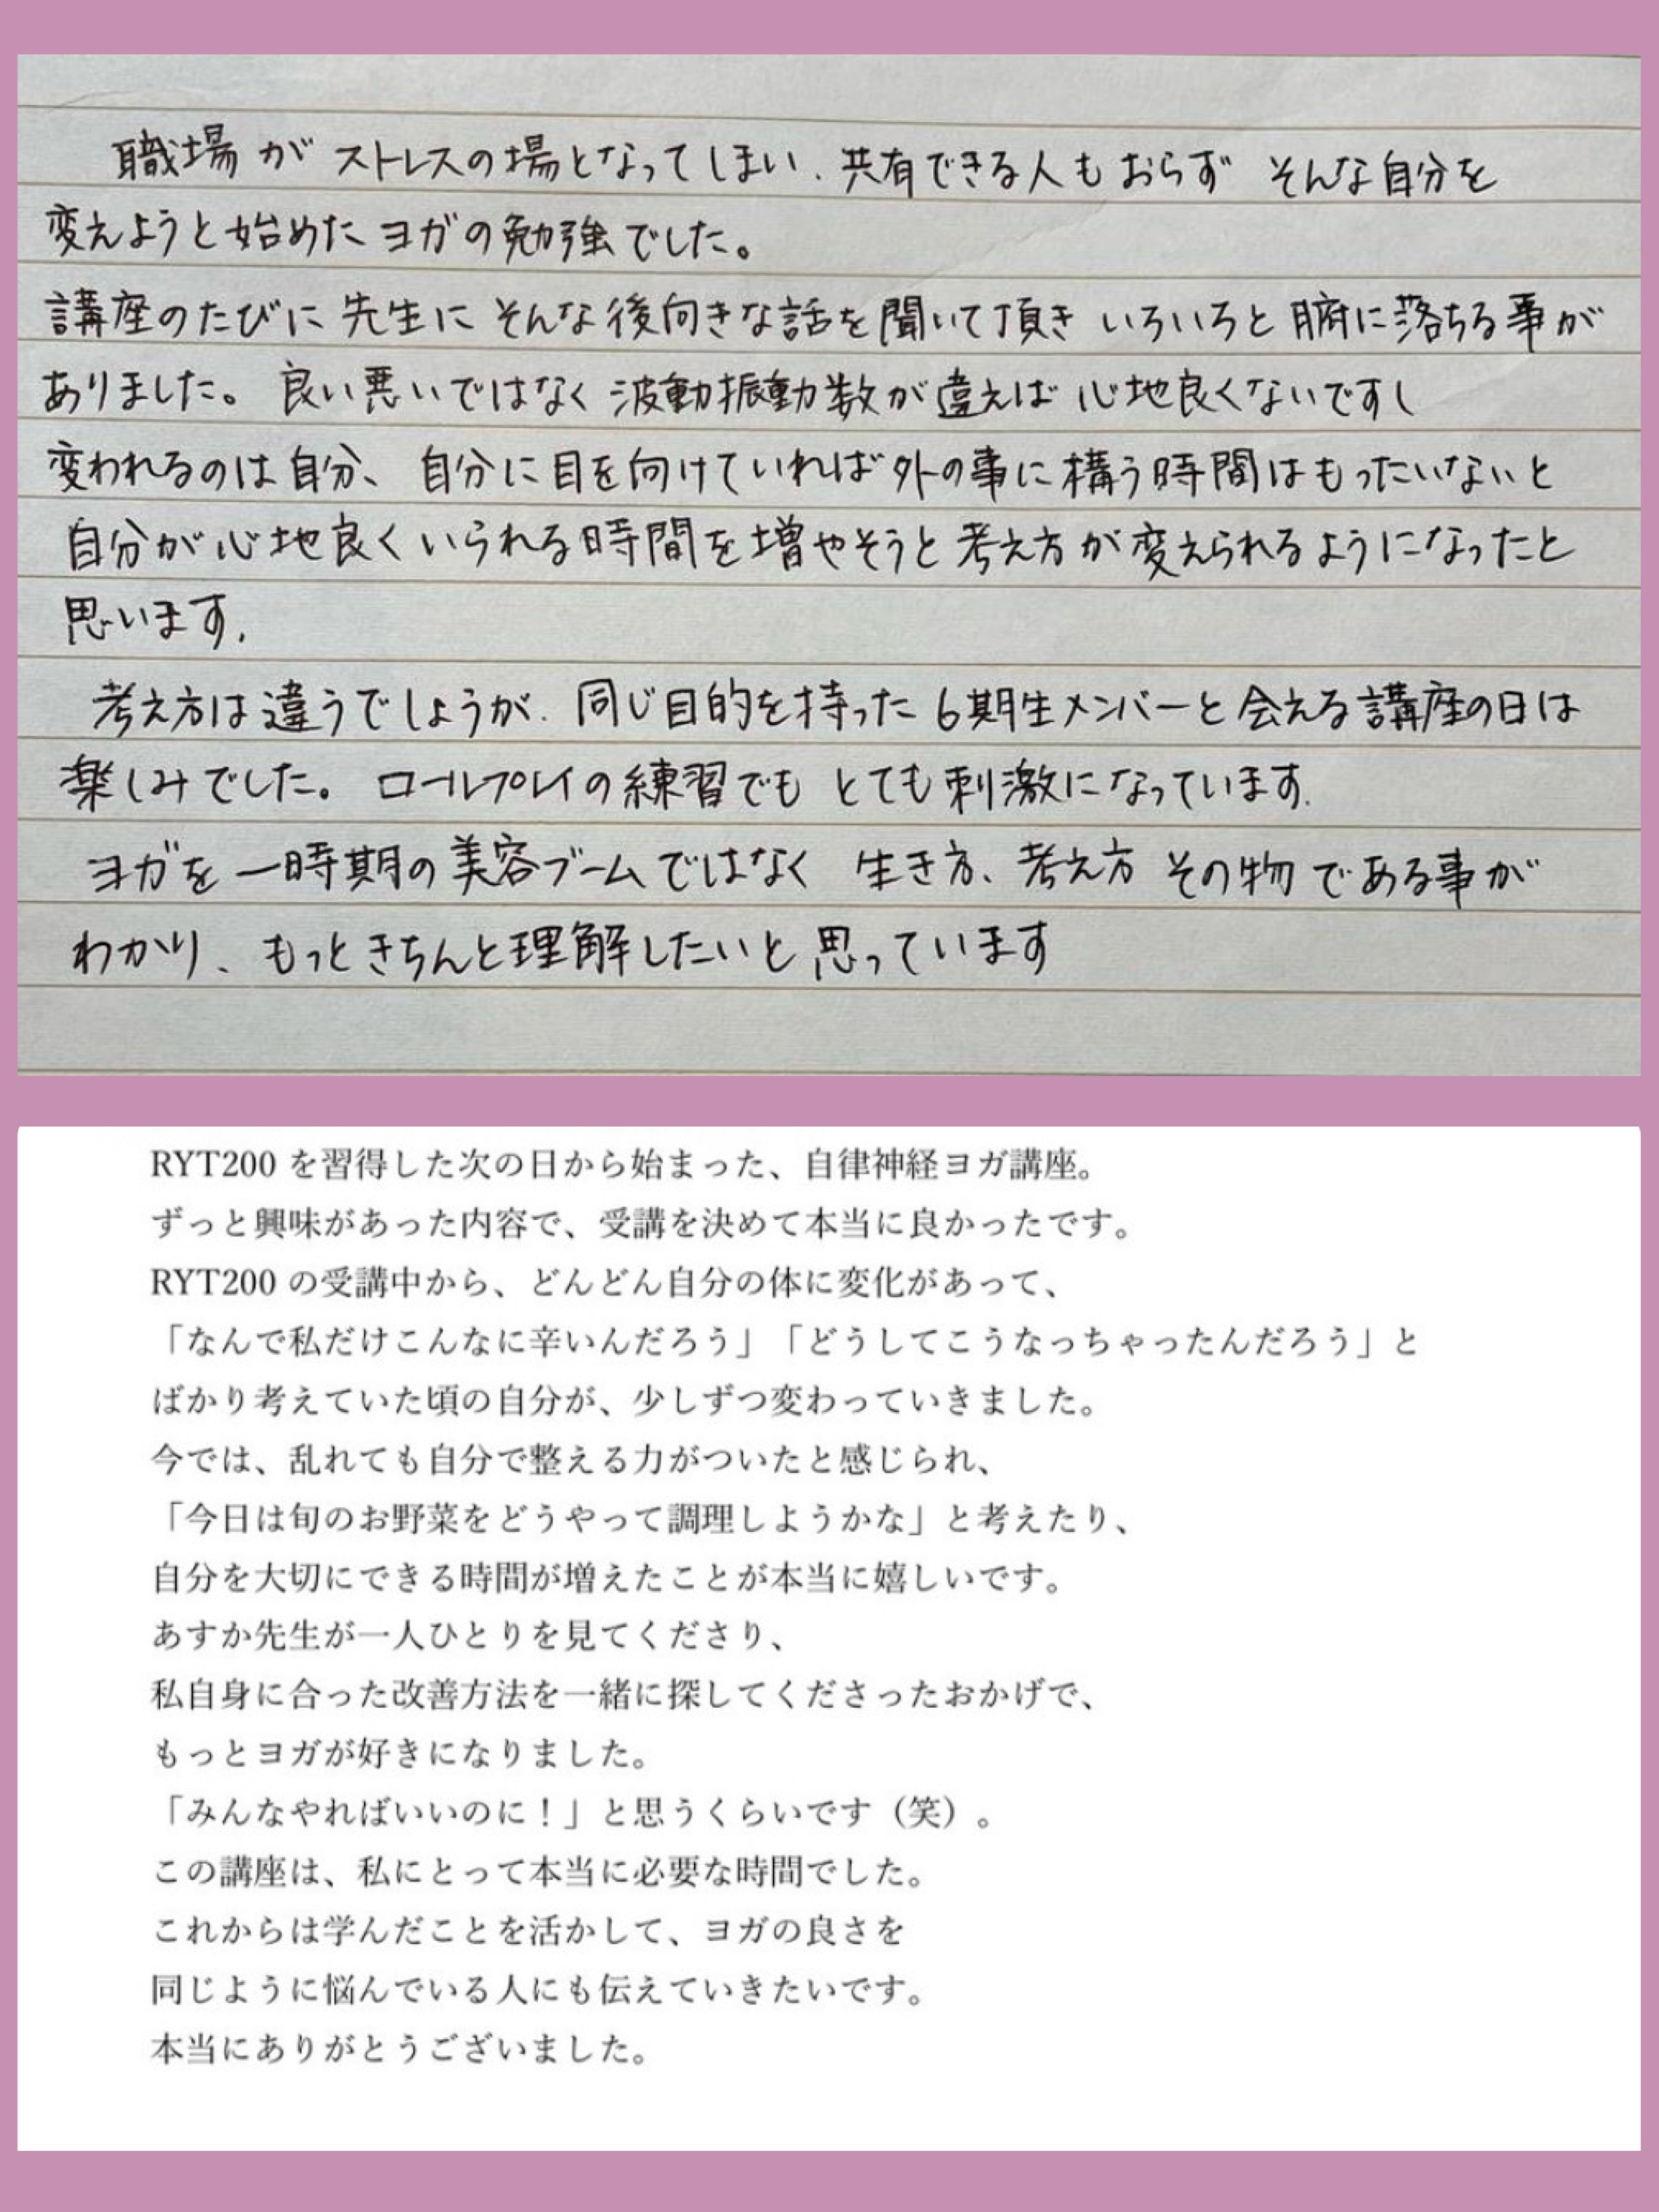 職場がストレスの場となってしまい、共有できる人もおらず そんな自分を
変えようと始めたヨガの勉強でした。
講座のたびに先生に そんな後向きな話を聞いて頂き いろいろと腑に落ちる事が
ありました。良い悪いではなく波動振動数が違えば心地良くないですし
変われるのは自分、自分に目を向けていれば外の事に構う時間はもったいないと
自分が心地良くいられる時間を増やそうと考え方が変えられるようになったと
思います。
考え方は違うでしょうが、同じ目的を持った6期生メンバーと会える講座の日は
楽しみでした。ロールプレイの練習でも とても刺激になっています。
ヨガを一時期の美容ブームではなく 生き方、考え方 その物である事が
わかり、もっときちんと理解したいと思っています
RYT200 を習得した次の日から始まった、自律神経ヨガ講座。
ずっと興味があった内容で、受講を決めて本当に良かったです。
RYT200 の受講中から、どんどん自分の体に変化があって、
「なんで私だけこんなに辛いんだろう」「どうしてこうなっちゃったんだろう」と
ばかり考えていた頃の自分が、少しずつ変わっていきました。
今では、乱れても自分で整える力がついたと感じられ、
「今日は旬のお野菜をどうやって調理しようかな」と考えたり、
自分を大切にできる時間が増えたことが本当に嬉しいです。
あすか先生が一人ひとりを見てくださり、
私自身に合った改善方法を一緒に探してくださったおかげで、
もっとヨガが好きになりました。
「みんなやればいいのに！」と思うくらいです（笑）。
この講座は、私にとって本当に必要な時間でした。
これからは学んだことを活かして、ヨガの良さを
同じように悩んでいる人にも伝えていきたいです。
本当にありがとうございました。